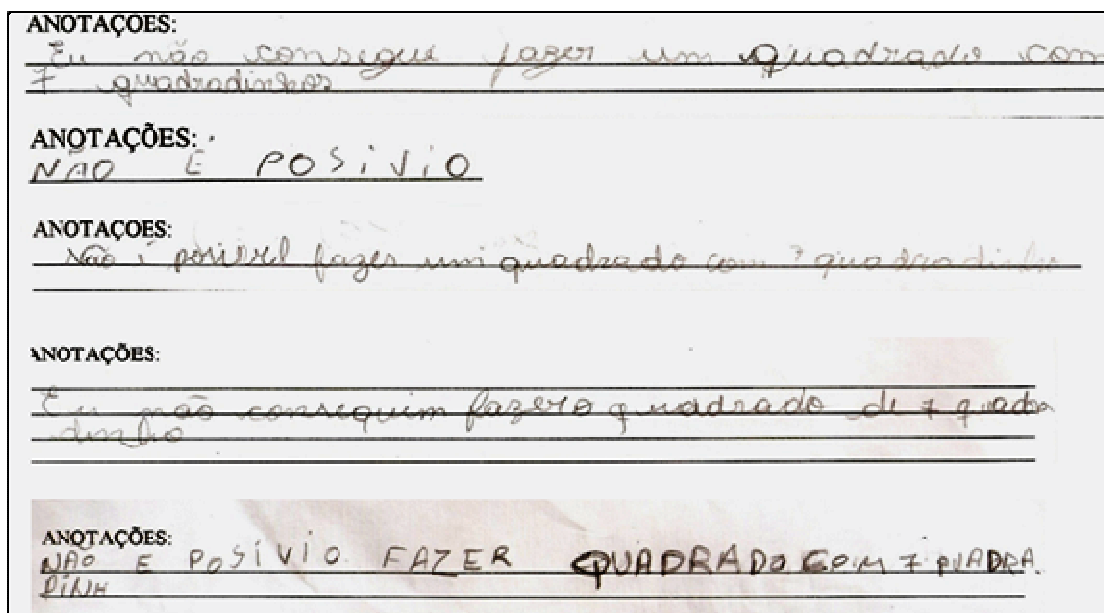 ANOTAÇÕES:
Eu não consegue fazer um quadrado com
7 quadradinhos
ANOTAÇÕES:
NÃO E POSiViO
ANOTAÇOES:
Não i posivel fazer um quadrado com 7 quadradinho
ANOTAÇÕES:
Eu não conseguim fazero quadrado de 7 quadra
dinho
ANOTAÇÕES:
NÃO E POSíViO. FAZER QUADRADO COM 7 QUADRA.
DINH